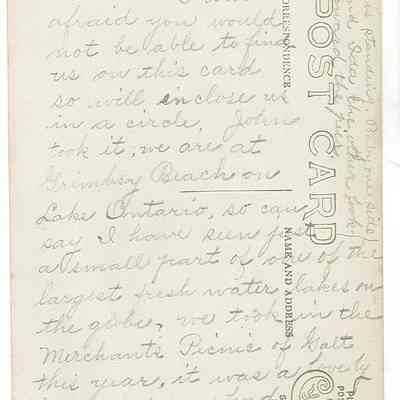 afraid you would
not be able to find
us on this card
so will enclose us
in a circle, John
took it, we are at
Grimbsy Beach on
Lake Ontario, so can
say I have seen just
a small part of one of the
largest fresh water lakes on
the globe, we took in the
Merchants Picnic of Galt
this year, it was a lovely
POST CARD
CORRESPONDENCE
NAME AND ADDRESS
is standing
one side
and
the other look
toward the pier